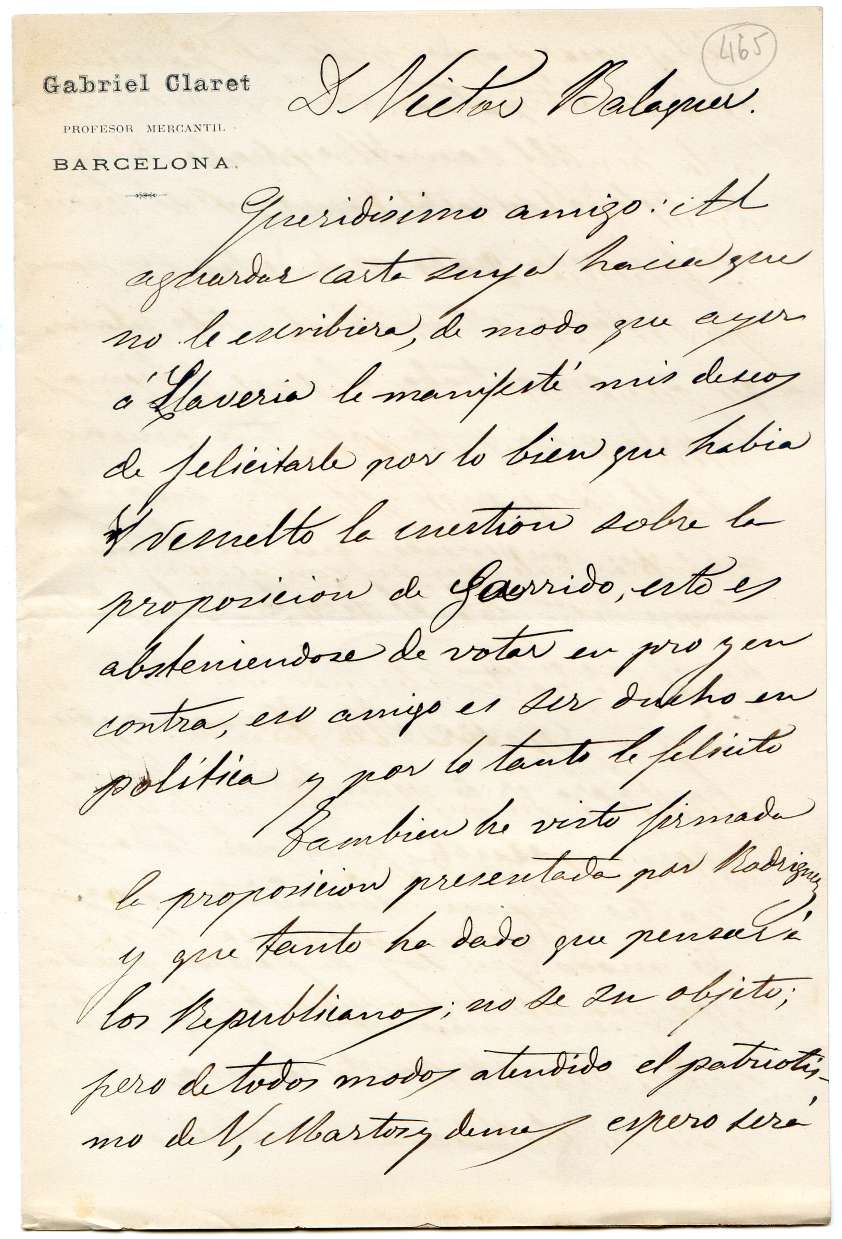 465
Gabriel Claret
PROFESOR MERCANTIL
BARCELONA.
D Victor Balaguer.
Queridisimo amigo: Al
aguardar carta suya hacia que
no le escribiera, de modo que ayer
á Llaveria le manifesté mis deseos
de felicitarle por lo bien que habia
resuelto la cuestion sobre la
proposicion de Garrido, esto es
absteniendose de votar en pro y en
contra, eso amigo es ser ducho en
política y por lo tanto le felicito
Tambien he visto firmada
la proposicion presentada por Rodriguez
y que tanto ha dado que pensar á
los Republicanos; no se su objeto;
pero de todos modos atendido el patriotis-
mo de V, Martos y demas espero será